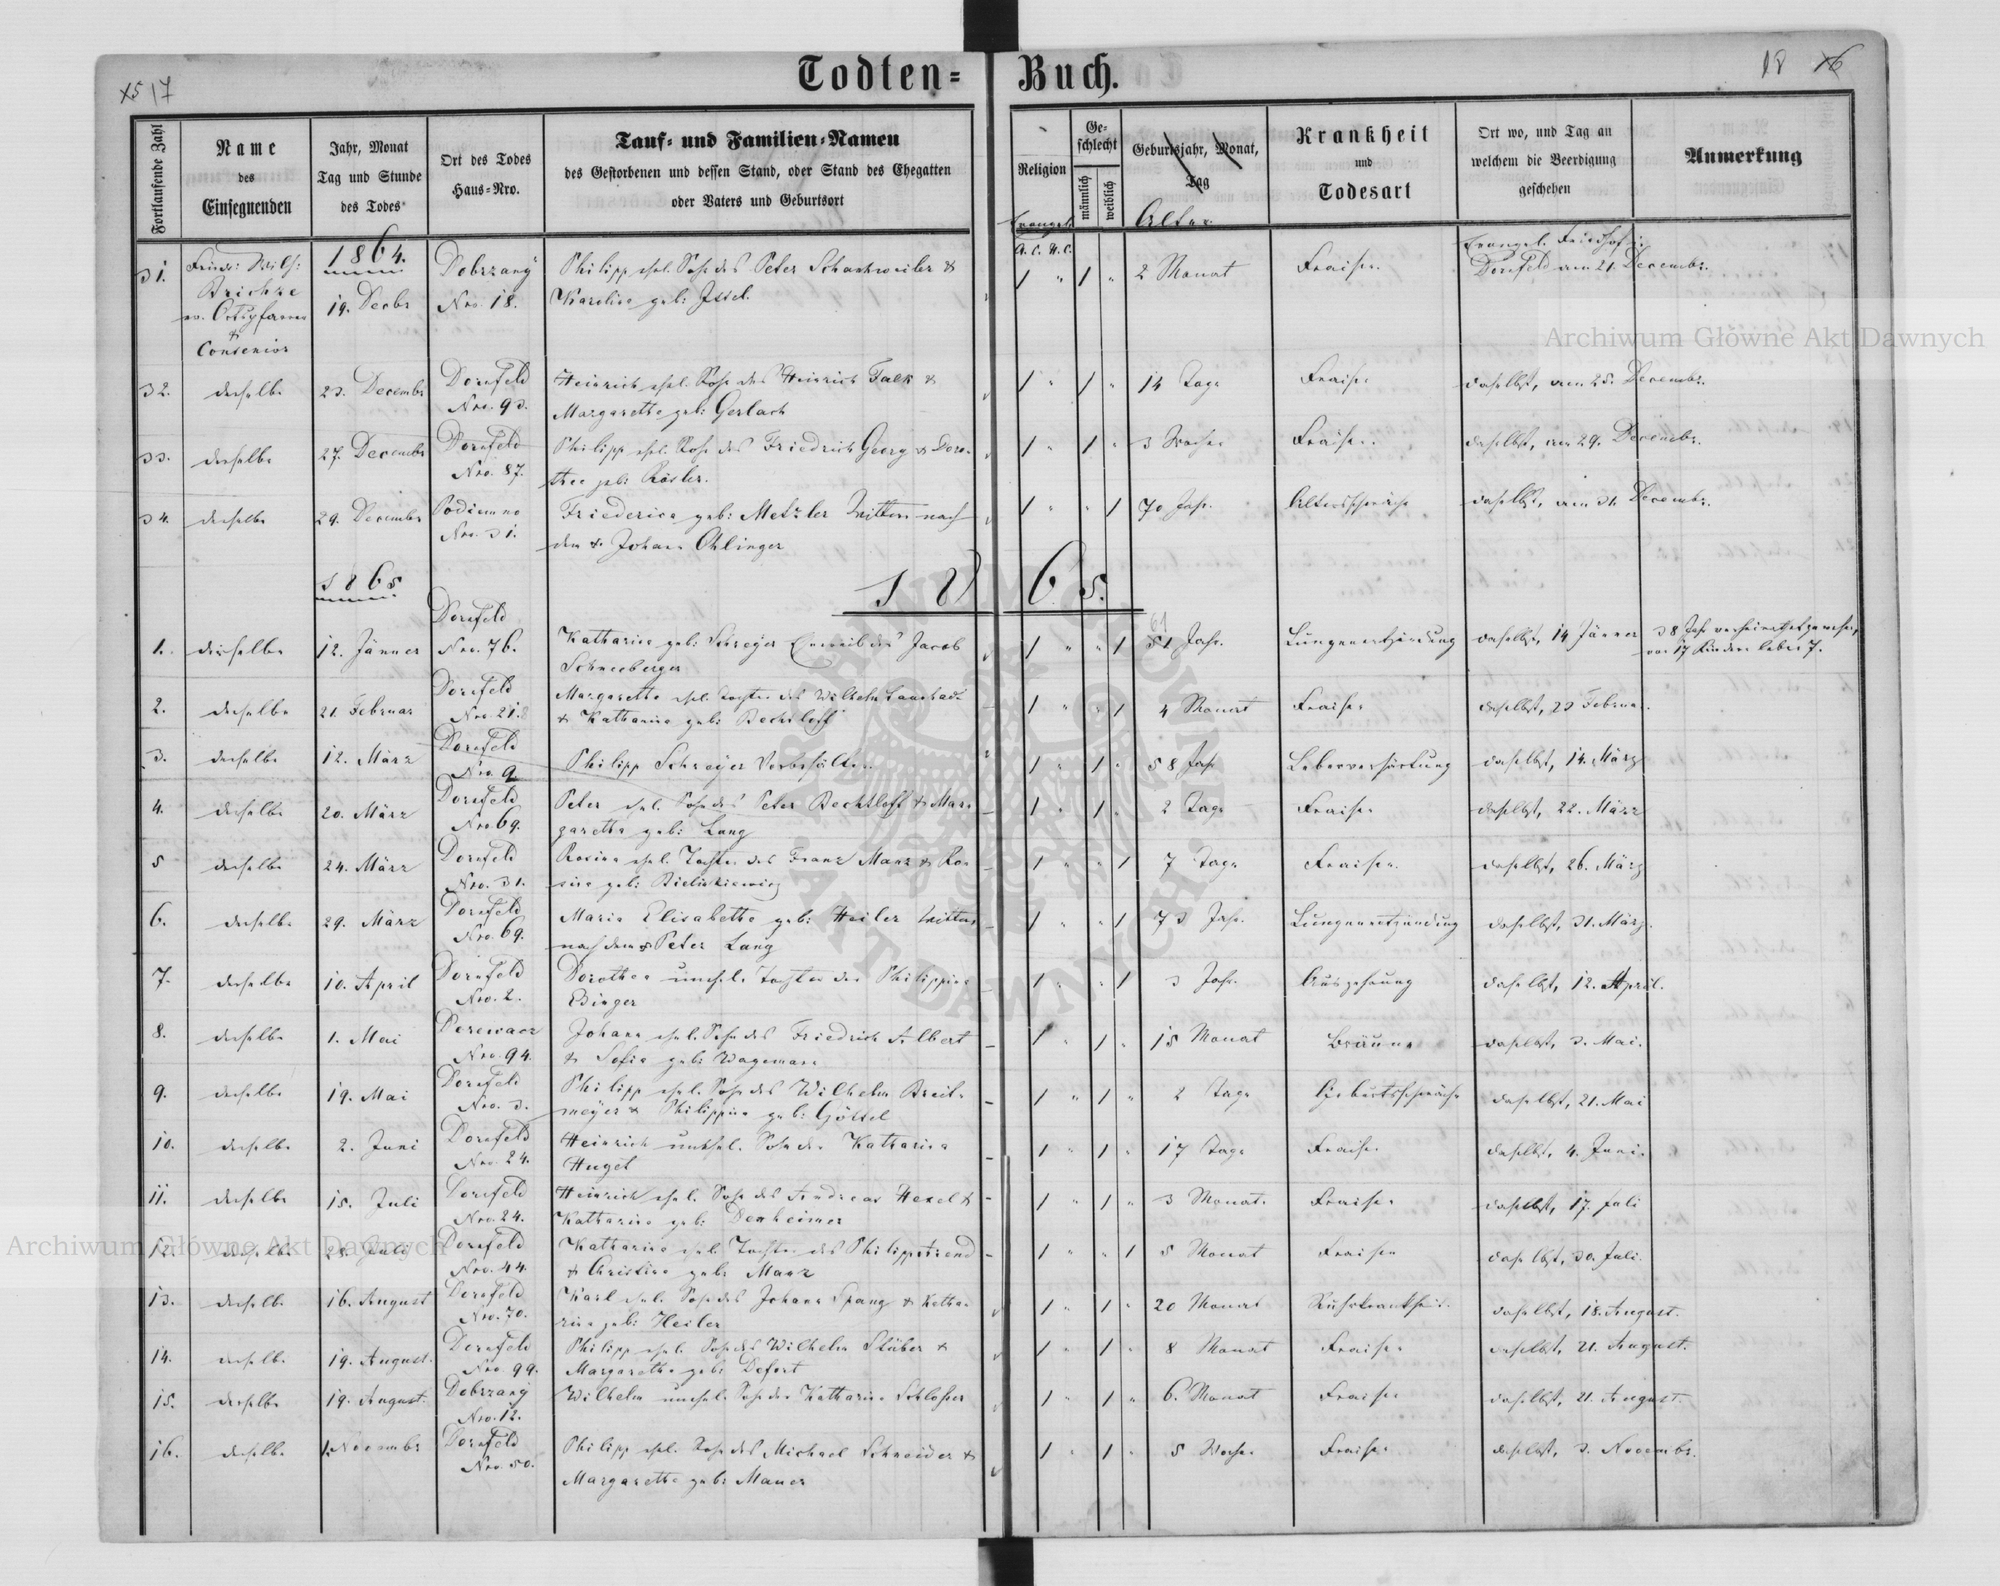 Todten= Buch.
15 17
18 16
Fortlaufende Zahl
Name
des
Einsegnenden
Jahr, Monat
Tag und Stunde
des Todes
Ort des Todes
Haus=Nro.
Tauf= und Familien=Namen
des Gestorbenen und dessen Stand, oder Stand des Ehegatten
oder Vaters und Geburtsort
Religion
Ge=
schlecht
männlich
weiblich
Geburtsjahr, Monat,
Tag
Alter
Krankheit
und
Todesart
Ort wo, und Tag an
welchem die Beerdigung
geschehen
Anmerkung
Evangel.
A. C. H. C.
1864.
31.
Brichze
ev. Ortspfarrer
&
Consenior
19. Decbr
Dobrzany
Nro. 18.
Philipp ehel. Sohn des Peter &
Karolina geb:
1 " 1 "
2 Monat
Fraisen
Evangel. Friedhof in
Dornfeld am 21. Decembr.
32. derselbe 23. Decembr
Dornfeld
Nro. 93.
Heinrich ehel. Sohn des Heinrich Falk &
Margaretha geb: Gerlach
1 " 1 " 14 Tage Fraisen daselbst, am 25. Decembr.
33. derselbe 27. Decembr
Dornfeld
Nro. 87.
Philipp ehel. Sohn des Friedrich Georg & Doro=
thea geb: Rösler.
1 " 1 " 3 Wochen Fraisen daselbst, am 29. Decembr.
34. derselbe 29. Decembr
Podiemno
Nro. 31.
Friederica geb: Metzler Wittwe nach
dem † Johann Ohlinger
1 " " 1 70 Jahr Altersschwäche daselbst, am 31. Decembr.
1865
1865.
1. derselbe 12. Jänner
Dornfeld
Nro. 76.
Katharina geb: Schreyer Eheweib des Jacob
Schneeberger
1 " " 1 61
51 Jahr Lungenentzündung daselbst, 14 Jänner
38 Jahr verheirathet gewesen,
von 17 Kindern leben 7.
2. derselbe 21. Februar
Dornfeld
Nro. 21.
Margaretha ehel. Tochter des Wilhelm
& Katharina geb: Bechtloff
1 " " 1 4 Monat Fraisen daselbst, 23 Februar.
3. derselbe 12. März
Dornfeld
Nro. 9
Philipp Schreyer
1 " 1 " 58 Jahr Leberverhärtung daselbst, 14. März
4. derselbe 20. März
Dornfeld
Nro. 69.
Peter ehel. Sohn des Peter Bechtloff & Mar=
garetha geb: Lang
1 " 1 " 2 Tage Fraisen daselbst, 22. März
5 derselbe 24. März
Dornfeld
Nro. 31.
Rosina ehel. Tochter des Franz Manz & Ro=
sina geb:
1 " " 1 7 Tage Fraisen daselbst, 26. März
6. derselbe 29. März
Dornfeld
Nro. 69.
Maria Elisabetha geb: Heiler Wittwe
nach dem † Peter Lang
1 " " 1 73 Jahr Lungenentzündung daselbst, 31. März.
7. derselbe 10. April
Dornfeld
Nro. 2.
Dorothea unehel. Tochter der Philippina
Edinger
1 " " 1 3 Jahr Auszehrung daselbst, 12. April.
8. derselbe 1. Mai
Derewacz
Nro. 94.
Johann ehel. Sohn des Friedrich Albert
& Sofia geb: Wagemann
1 " 1 " 15 Monat Bräune daselbst, 3. Mai.
9. derselbe 19. Mai
Dornfeld
Nro. 3.
Philipp ehel. Sohn des Wilhelm Breit=
meyer & Philippina geb: Göttel
1 " 1 " 2 Tage Geburtsschwäche daselbst, 21. Mai
10. derselbe 2. Juni
Dornfeld
Nro. 24.
Heinrich unehel. Sohn der Katharina
Hugel
1 " 1 " 17 Tage Fraisen daselbst, 4. Juni.
11. derselbe 15. Juli
Dornfeld
Nro. 24.
Heinrich ehel. Sohn des Andreas Hexel &
Katharina geb: Dexheimer
1 " 1 " 3 Monat. Fraisen daselbst, 17. Juli
12. derselbe 28. Juli
Dornfeld
Nro. 44.
Katharina ehel. Tochter des Philipp
& Christina geb: Manz
1 " " 1 5 Monat Fraisen daselbst, 30. Juli.
13. derselbe 16. August
Dornfeld
Nro. 70.
Karl ehel. Sohn des Johann Spang & Katha=
rina geb: Heiler
1 " 1 " 20 Monat Ruhrkrankheit. daselbst, 18. August.
14. derselbe 19. August.
Dornfeld
Nro. 99.
Philipp ehel. Sohn des Wilhelm Stüber &
Margaretha geb: Defort
1 " 1 " 8 Monat Fraisen daselbst, 21. August.
15. derselbe 19. August.
Dobrzany
Nro. 12.
Wilhelm unehel. Sohn der Katharina Schlosser
1 " 1 " 6. Monat Fraisen daselbst, 21. August.
16. derselbe 1. Novembr
Dornfeld
Nro. 50.
Philipp ehel. Sohn des Michael Schneider &
Margaretha geb: Mauer
1 " 1 " 5 Wochen Fraisen daselbst, 3. Novembr.
Archiwum Główne Akt Dawnych
Archiwum Główne Akt Dawnych
ARCHIWUM GŁÓWNE AKT DAWNYCH